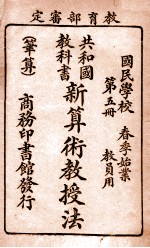 教育部審定
國民學校 春季始業
第五冊 教員用
共和國
教科書
新算術教授法
（筆算）
商務印書館發行